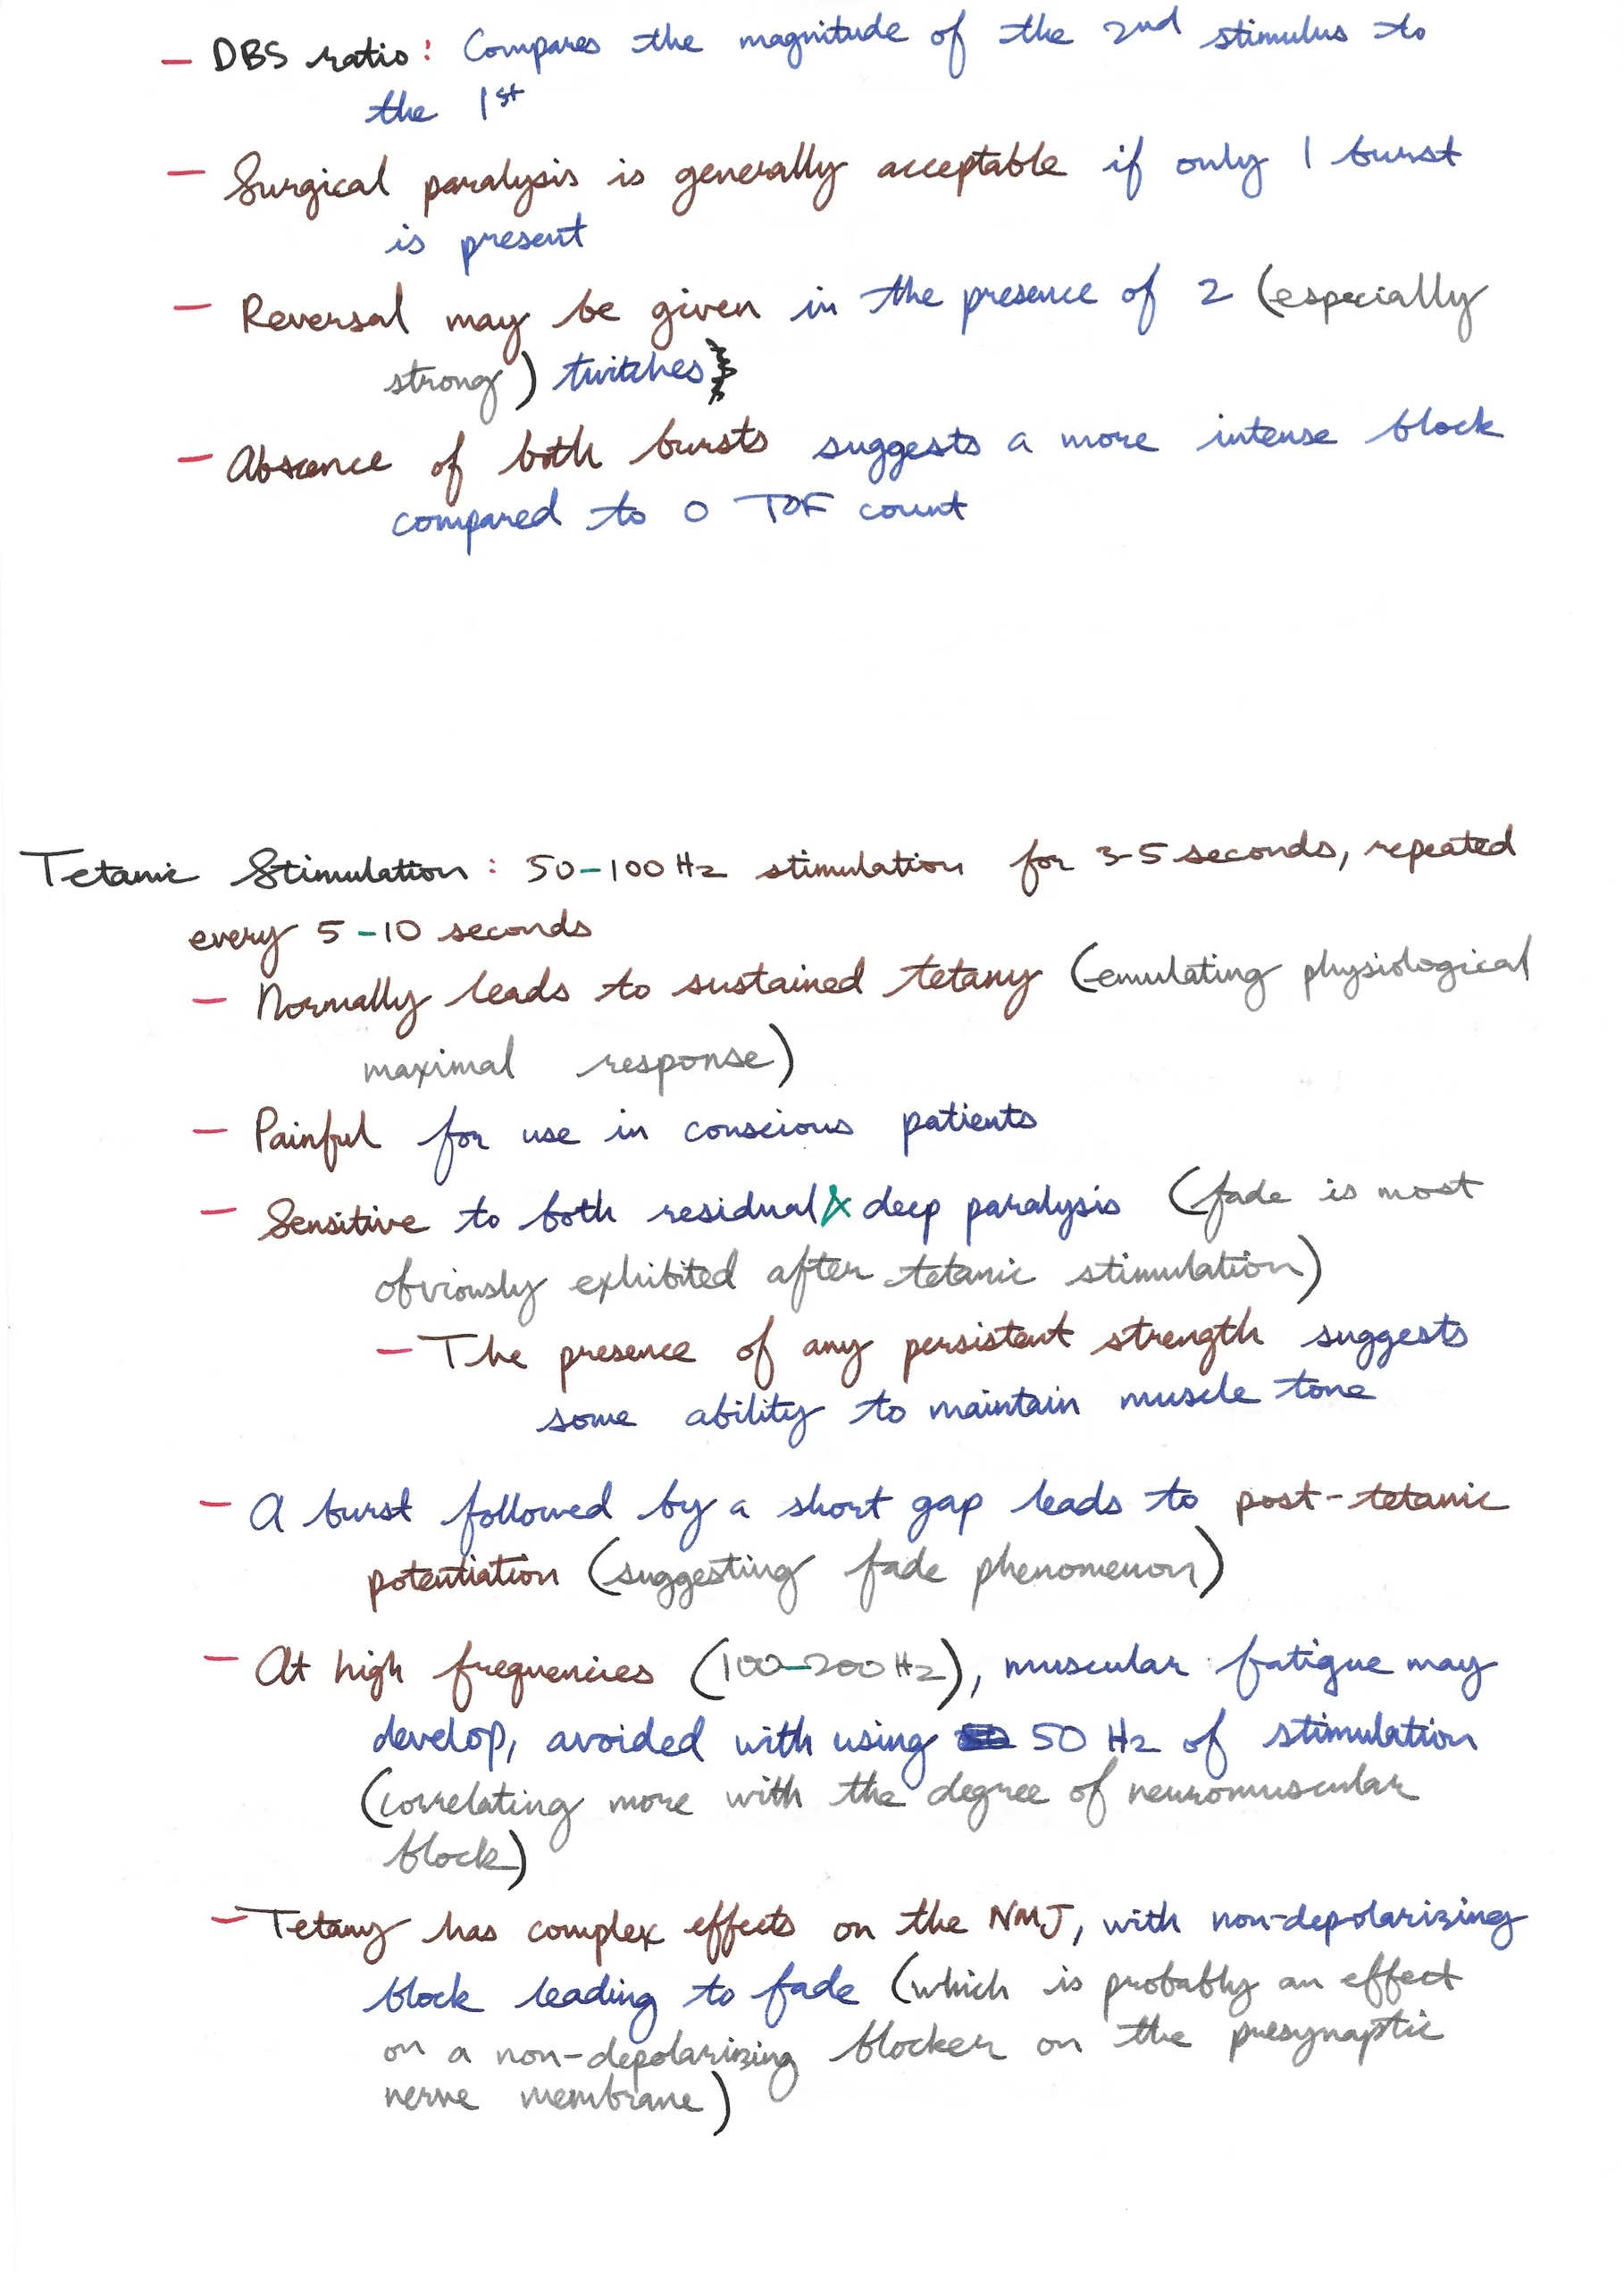 - DBS ratio: Compares the magnitude of the 2nd stimulus to
the 1st
- Surgical paralysis is generally acceptable if only 1 burst
is present
- Reversal may be given in the presence of 2 (especially
strong) twitches
- Absence of both bursts suggests a more intense block
compared to 0 TOF count
Tetanic Stimulation: 50-100 Hz stimulation for 3-5 seconds, repeated
every 5-10 seconds
- Normally leads to sustained tetany (emulating physiological
maximal response)
- Painful for use in conscious patients
- Sensitive to both residual & deep paralysis (fade is most
obviously exhibited after tetanic stimulation)
- The presence of any persistent strength suggests
some ability to maintain muscle tone
- A burst followed by a short gap leads to post-tetanic
potentiation (suggesting fade phenomenon)
- At high frequencies (100-200 Hz), muscular fatigue may
develop, avoided with using 50 Hz of stimulation
(correlating more with the degree of neuromuscular
block)
- Tetany has complex effects on the NMJ, with non-depolarizing
block leading to fade (which is probably an effect
on a non-depolarizing blocker on the presynaptic
nerve membrane)